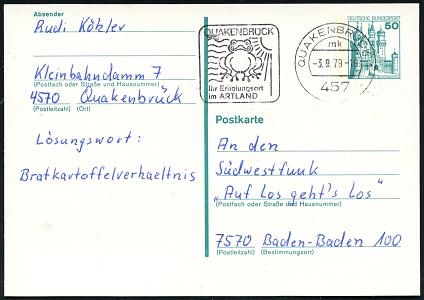 Absender
Rudi Köhler
Kleinbahndamm 7
(Postfach oder Straße und Hausnummer)
4570 Quakenbrück
(Postleitzahl) (Ort)
Lösungswort:
Bratkartoffelverhaeltnis
QUAKENBRÜCK
Ihr Erholungsort
im ARTLAND
QUAKENBRÜCK
mk
-3.9.79-19
457
DEUTSCHE BUNDESPOST
50
Postkarte
An den
Südwestfunk
„Auf Los geht's Los"
(Postfach oder Straße und Hausnummer)
7570 Baden-Baden 100
(Postleitzahl) (Bestimmungsort)